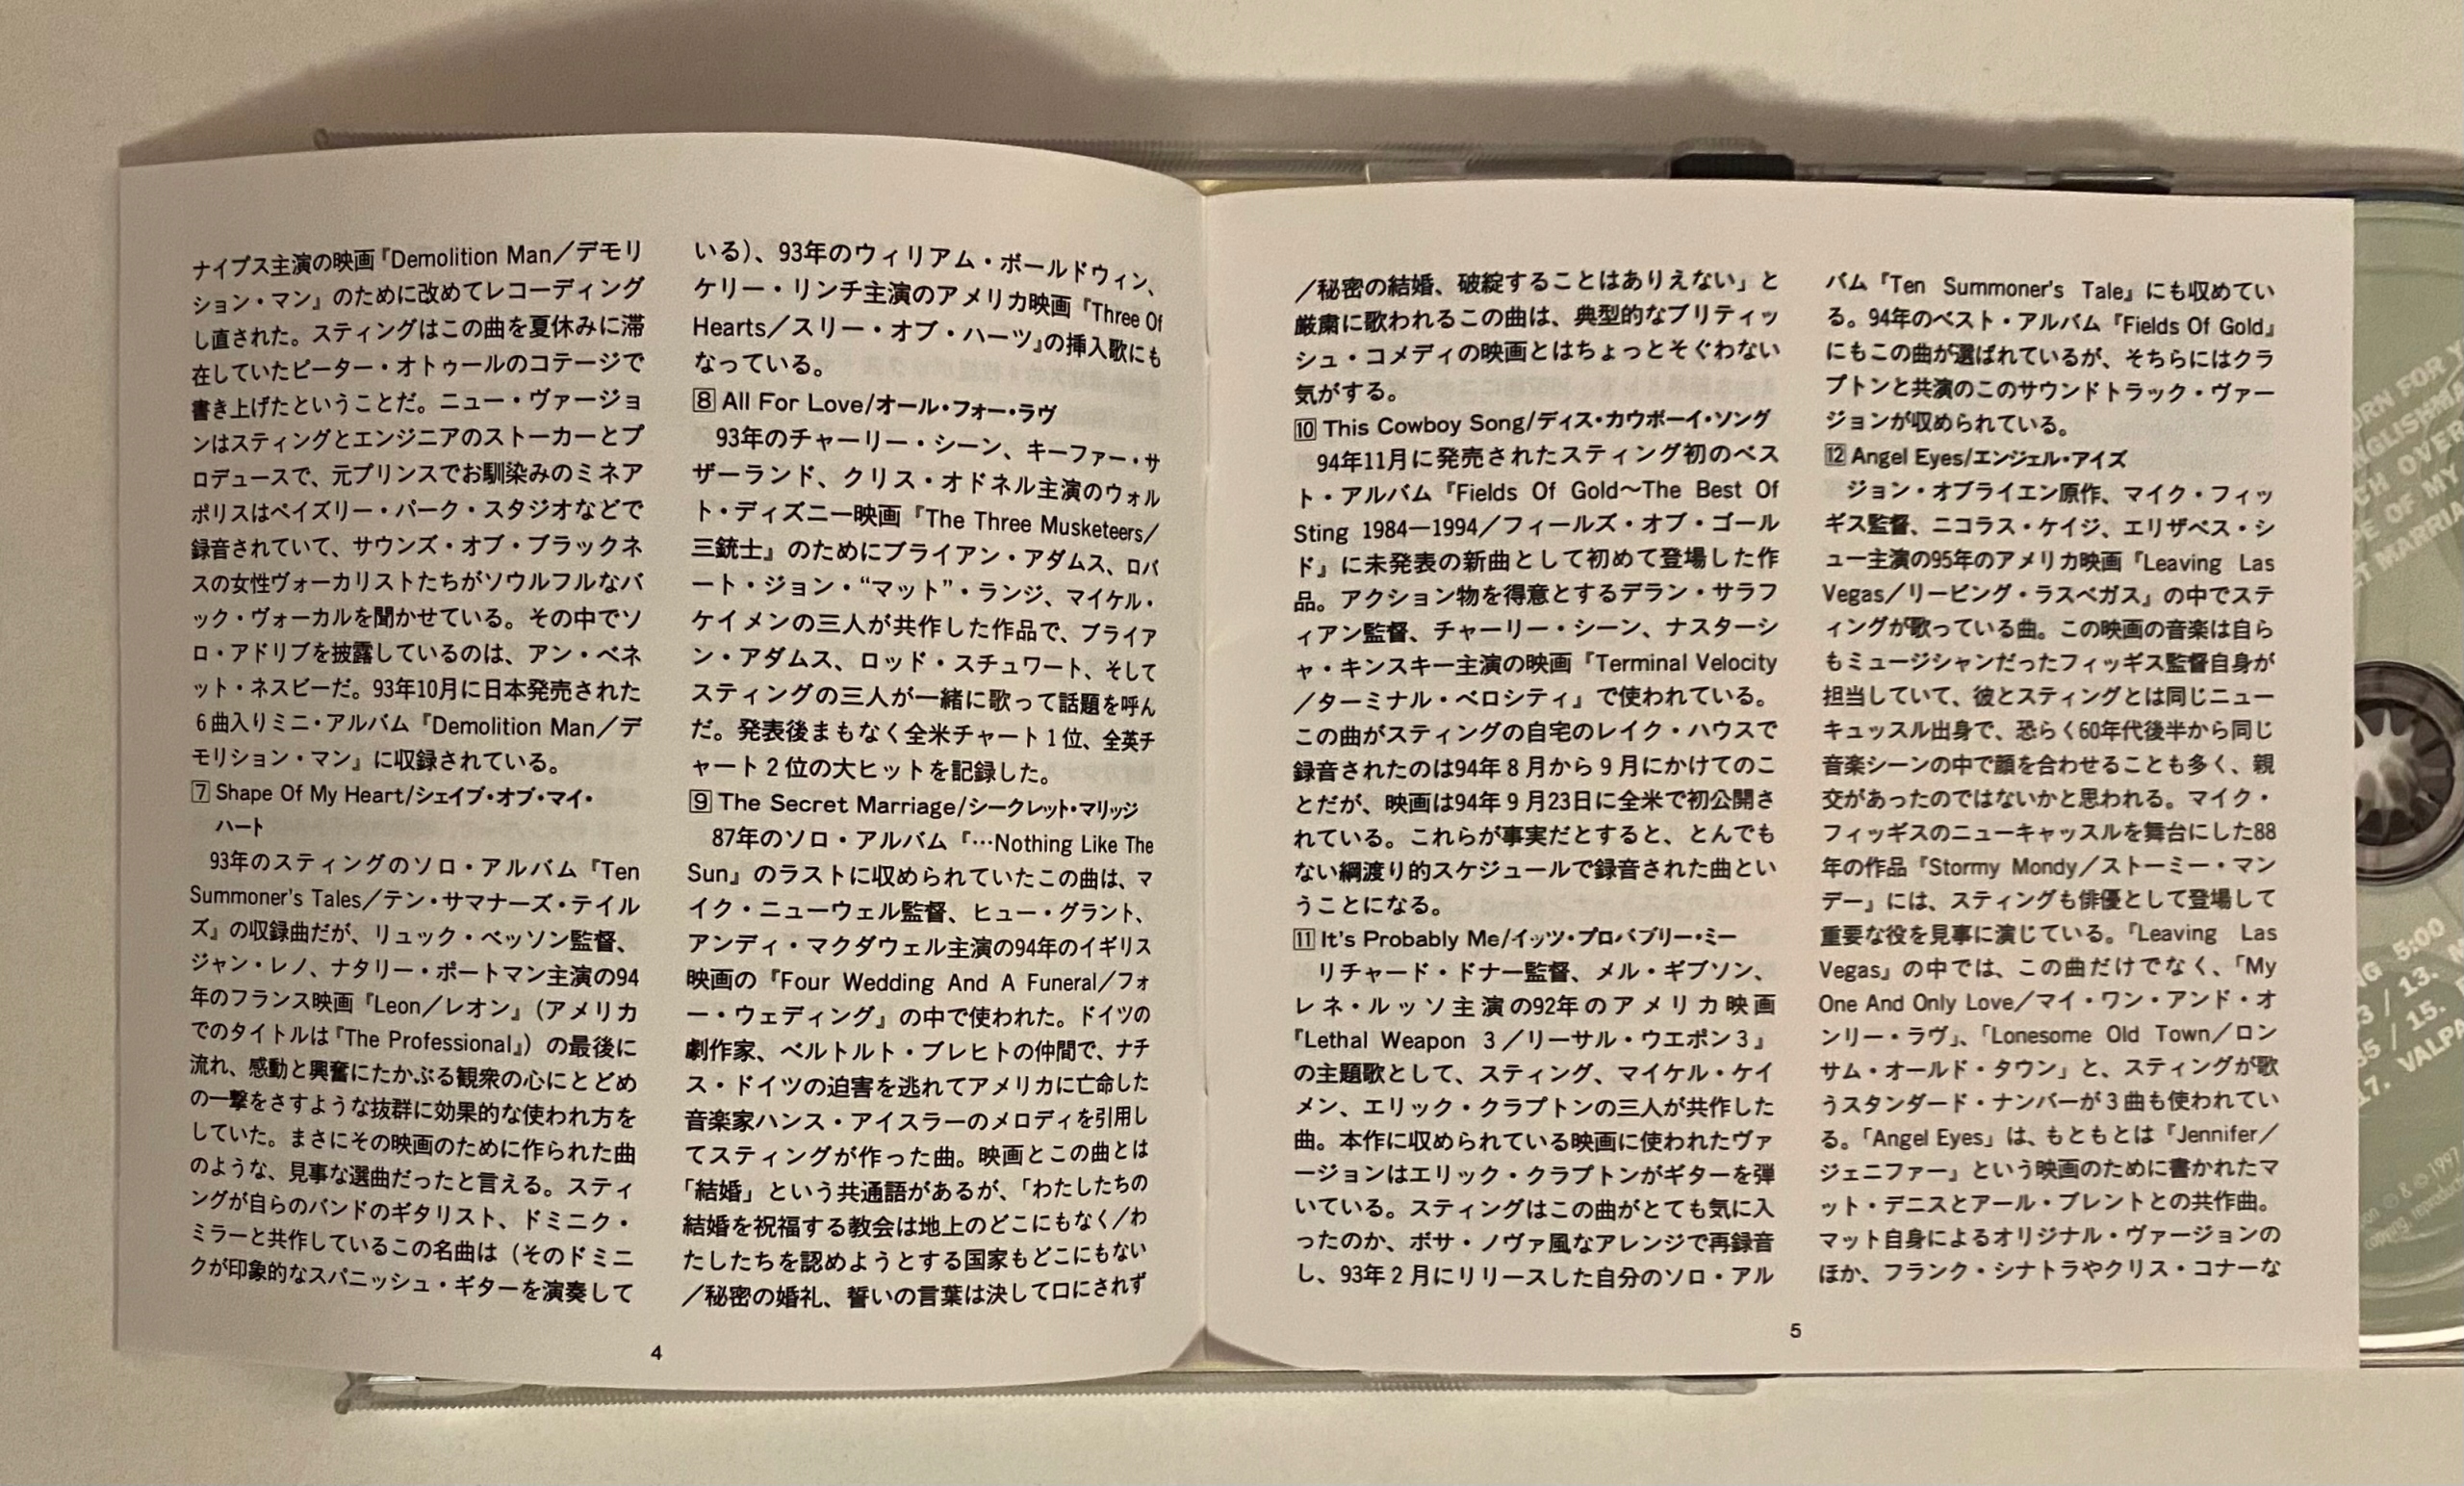 ナイプス主演の映画『Demolition Man／デモリ
ション・マン』のために改めてレコーディング
し直された。スティングはこの曲を夏休みに滞
在していたピーター・オトゥールのコテージで
書き上げたということだ。ニュー・ヴァージョ
ンはスティングとエンジニアのストーカーとプ
ロデュースで、元プリンスでお馴染みのミネア
ポリスはペイズリー・パーク・スタジオなどで
録音されていて、サウンズ・オブ・ブラックネ
スの女性ヴォーカリストたちがソウルフルなバ
ック・ヴォーカルを聞かせている。その中でソ
ロ・アドリブを披露しているのは、アン・ベネ
ット・ネスビーだ。93年10月に日本発売された
6曲入りミニ・アルバム『Demolition Man／デ
モリション・マン』に収録されている。
7 Shape Of My Heart/シェイプ・オブ・マイ・
ハート
93年のスティングのソロ・アルバム『Ten
Summoner's Tales／テン・サマナーズ・テイル
ズ』の収録曲だが、リュック・ベッソン監督、
ジャン・レノ、ナタリー・ポートマン主演の94
年のフランス映画『Leon／レオン』（アメリカ
でのタイトルは『The Professional』）の最後に
流れ、感動と興奮にたかぶる観衆の心にとどめ
の一撃をさすような抜群に効果的な使われ方を
していた。まさにその映画のために作られた曲
のような、見事な選曲だったと言える。スティ
ングが自らのバンドのギタリスト、ドミニク・
ミラーと共作しているこの名曲は（そのドミニ
クが印象的なスパニッシュ・ギターを演奏して
いる）、93年のウィリアム・ボールドウィン、
ケリー・リンチ主演のアメリカ映画『Three Of
Hearts／スリー・オブ・ハーツ』の挿入歌にも
なっている。
8 All For Love/オール・フォー・ラヴ
93年のチャーリー・シーン、キーファー・サ
ザーランド、クリス・オドネル主演のウォル
ト・ディズニー映画『The Three Musketeers／
三銃士』のためにブライアン・アダムス、ロバ
ート・ジョン・“マット”・ランジ、マイケル・
ケイメンの三人が共作した作品で、ブライア
ン・アダムス、ロッド・スチュワート、そして
スティングの三人が一緒に歌って話題を呼ん
だ。発表後まもなく全米チャート1位、全英チ
ャート2位の大ヒットを記録した。
9 The Secret Marriage/シークレット・マリッジ
87年のソロ・アルバム『…Nothing Like The
Sun』のラストに収められていたこの曲は、マ
イク・ニューウェル監督、ヒュー・グラント、
アンディ・マクダウェル主演の94年のイギリス
映画の『Four Wedding And A Funeral／フォ
ー・ウェディング』の中で使われた。ドイツの
劇作家、ベルトルト・ブレヒトの仲間で、ナチ
ス・ドイツの迫害を逃れてアメリカに亡命した
音楽家ハンス・アイスラーのメロディを引用し
てスティングが作った曲。映画とこの曲とは
「結婚」という共通語があるが、「わたしたちの
結婚を祝福する教会は地上のどこにもなく／わ
たしたちを認めようとする国家もどこにもない
／秘密の婚礼、誓いの言葉は決して口にされず
4
／秘密の結婚、破綻することはありえない」と
厳粛に歌われるこの曲は、典型的なブリティッ
シュ・コメディの映画とはちょっとそぐわない
気がする。
10 This Cowboy Song/ディス・カウボーイ・ソング
94年11月に発売されたスティング初のベス
ト・アルバム『Fields Of Gold〜The Best Of
Sting 1984―1994／フィールズ・オブ・ゴール
ド』に未発表の新曲として初めて登場した作
品。アクション物を得意とするデラン・サラフ
ィアン監督、チャーリー・シーン、ナスターシ
ャ・キンスキー主演の映画『Terminal Velocity
／ターミナル・ベロシティ』で使われている。
この曲がスティングの自宅のレイク・ハウスで
録音されたのは94年8月から9月にかけてのこ
とだが、映画は94年9月23日に全米で初公開さ
れている。これらが事実だとすると、とんでも
ない綱渡り的スケジュールで録音された曲とい
うことになる。
11 It's Probably Me/イッツ・プロバブリー・ミー
リチャード・ドナー監督、メル・ギブソン、
レネ・ルッソ主演の92年のアメリカ映画
『Lethal Weapon 3／リーサル・ウエポン3』
の主題歌として、スティング、マイケル・ケイ
メン、エリック・クラプトンの三人が共作した
曲。本作に収められている映画に使われたヴァ
ージョンはエリック・クラプトンがギターを弾
いている。スティングはこの曲がとても気に入
ったのか、ボサ・ノヴァ風なアレンジで再録音
し、93年2月にリリースした自分のソロ・アル
バム『Ten Summoner's Tale』にも収めてい
る。94年のベスト・アルバム『Fields Of Gold』
にもこの曲が選ばれているが、そちらにはクラ
プトンと共演のこのサウンドトラック・ヴァー
ジョンが収められている。
12 Angel Eyes/エンジェル・アイズ
ジョン・オブライエン原作、マイク・フィッ
ギス監督、ニコラス・ケイジ、エリザベス・シ
ュー主演の95年のアメリカ映画『Leaving Las
Vegas／リービング・ラスベガス』の中でステ
ィングが歌っている曲。この映画の音楽は自ら
もミュージシャンだったフィッギス監督自身が
担当していて、彼とスティングとは同じニュー
キュッスル出身で、恐らく60年代後半から同じ
音楽シーンの中で顔を合わせることも多く、親
交があったのではないかと思われる。マイク・
フィッギスのニューキャッスルを舞台にした88
年の作品『Stormy Mondy／ストーミー・マン
デー』には、スティングも俳優として登場して
重要な役を見事に演じている。『Leaving Las
Vegas』の中では、この曲だけでなく、「My
One And Only Love／マイ・ワン・アンド・オ
ンリー・ラヴ」、「Lonesome Old Town／ロン
サム・オールド・タウン」と、スティングが歌
うスタンダード・ナンバーが3曲も使われてい
る。「Angel Eyes」は、もともとは『Jennifer／
ジェニファー』という映画のために書かれたマ
ット・デニスとアール・ブレントとの共作曲。
マット自身によるオリジナル・ヴァージョンの
ほか、フランク・シナトラやクリス・コナーな
5
OVER
OF MY
MARRIA
5:00
/ 13.
/ 15.
17. VALPA
1997